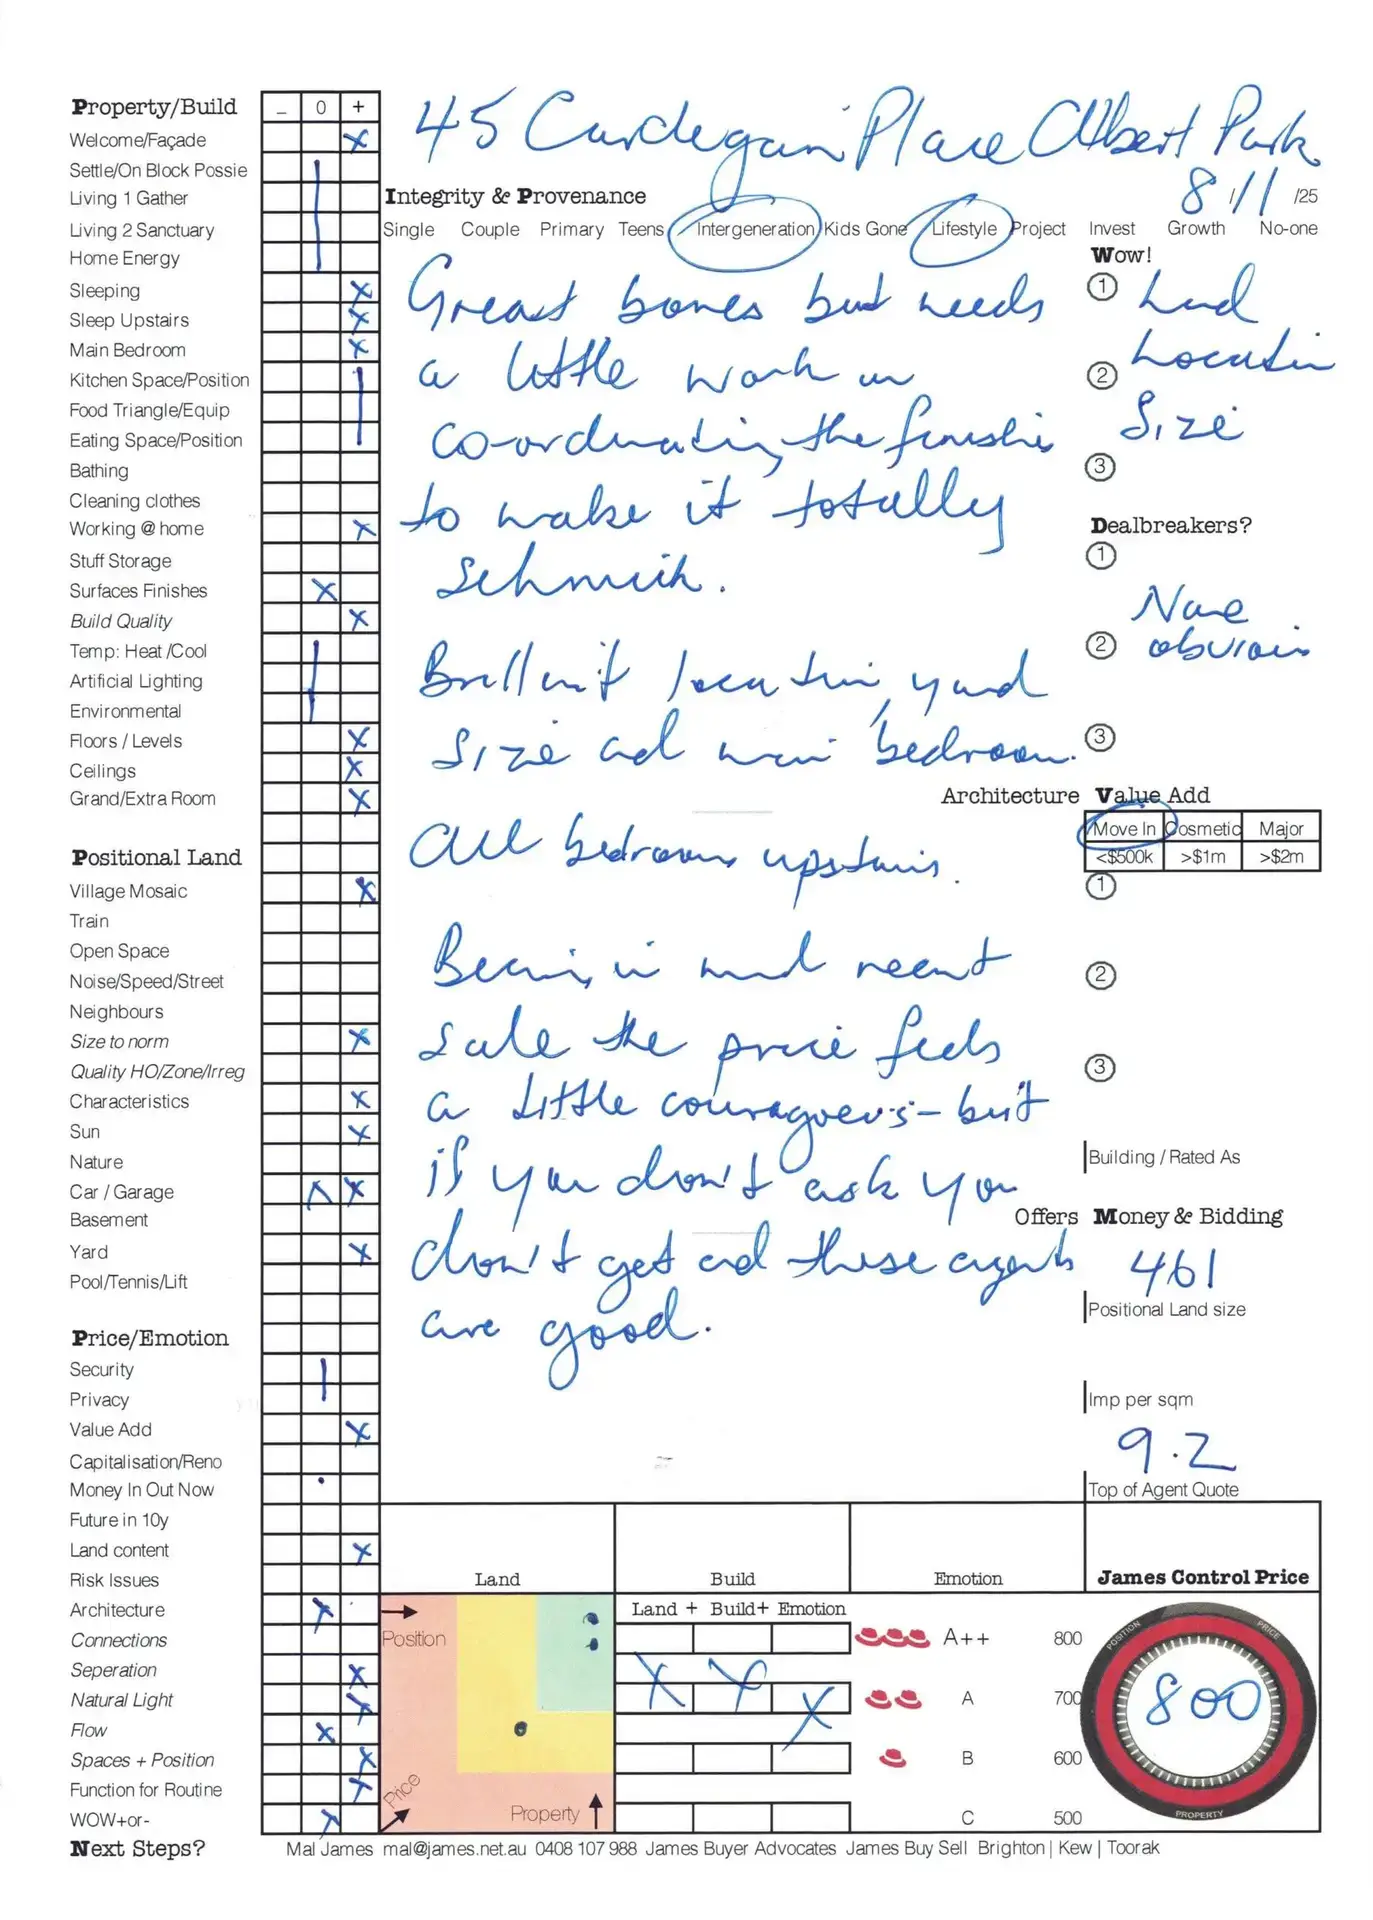 Property/Build
– 0 +
Welcome/Façade
Settle/On Block Possie
Living 1 Gather
Living 2 Sanctuary
Home Energy
Sleeping
Sleep Upstairs
Main Bedroom
Kitchen Space/Position
Food Triangle/Equip
Eating Space/Position
Bathing
Cleaning clothes
Working @ home
Stuff Storage
Surfaces Finishes
Build Quality
Temp: Heat /Cool
Artificial Lighting
Environmental
Floors / Levels
Ceilings
Grand/Extra Room
Positional Land
Village Mosaic
Train
Open Space
Noise/Speed/Street
Neighbours
Size to norm
Quality HO/Zone/Irreg
Characteristics
Sun
Nature
Car / Garage
Basement
Yard
Pool/Tennis/Lift
Price/Emotion
Security
Privacy
Value Add
Capitalisation/Reno
Money In Out Now
Future in 10y
Land content
Risk Issues
Architecture
Connections
Seperation
Natural Light
Flow
Spaces + Position
Function for Routine
WOW+or-
Next Steps?
45 Place Albert Park
Integrity & Provenance
8/11 /25
Single Couple Primary Teens Intergeneration Kids Gone Lifestyle Project Invest Growth No-one
Great bones but needs
a little work on
co-ordinating the finishes
to make it totally
schmick.
Brilliant location, yard
size and main bedroom.
All bedrooms upstairs.
Bearing in mind recent
sale the price feels
a little courageous - but
if you don't ask you
don't get and these agents
are good.
Wow!
1 Land
2 Location
Size
3
Dealbreakers?
1
None
2 obvious
3
Architecture Value Add
Move In Cosmetic Major
<$500k >$1m >$2m
1
2
3
Building / Rated As
Offers Money & Bidding
461
Positional Land size
Imp per sqm
9.2
Top of Agent Quote
Land Build Emotion James Control Price
Position
Price
Property
Land + Build+ Emotion
A++ 800
A 700
B 600
C 500
POSITION PRICE
800
PROPERTY
Mal James mal@james.net.au 0408 107 988 James Buyer Advocates James Buy Sell Brighton | Kew | Toorak